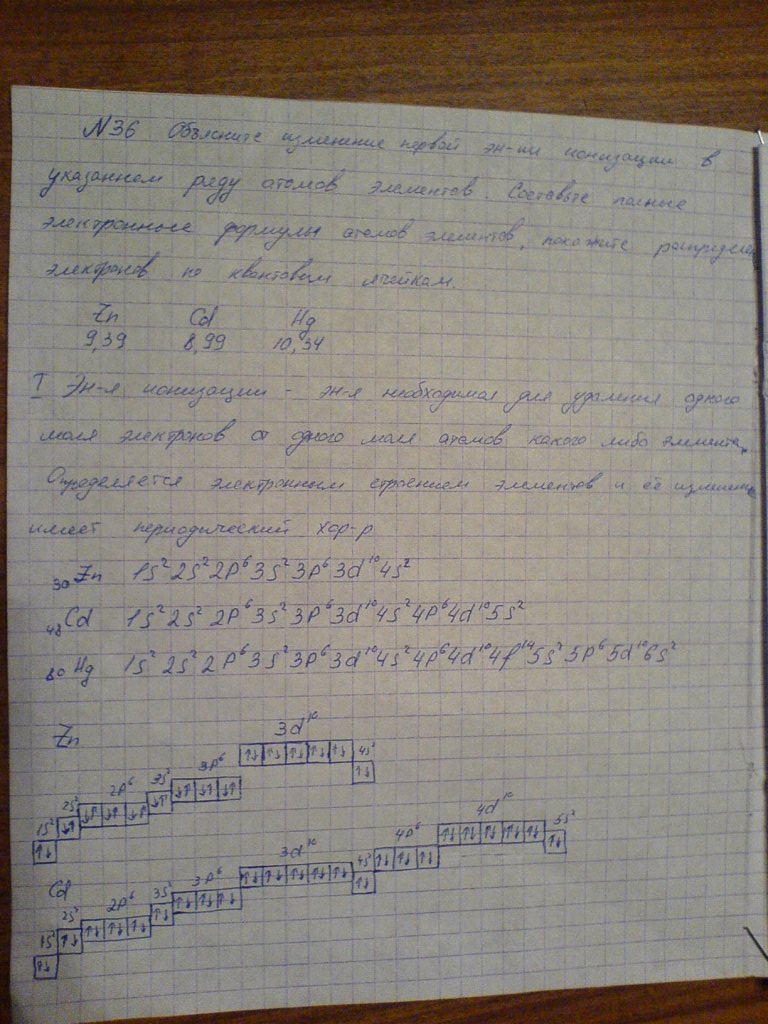 N36 Объясните изменение первой эн-ии ионизации в
указанном ряду атомов элементов. Составьте полные
электронные формулы атомов элементов, покажите распределен
электронов по квантовым ячейкам.
Zn Cd Hg
9,39 8,99 10,34
I Эн-я ионизации - эн-я необходимая для удаления одного
моля электронов от одного моля атомов какого либо элемента.
Определяется электронным строением элементов и её изменен
имеет периодический хар-р
₃₀Zn 1s²2s²2p⁶3s²3p⁶3d¹⁰4s²
₄₈Cd 1s²2s²2p⁶3s²3p⁶3d¹⁰4s²4p⁶4d¹⁰5s²
₈₀Hg 1s²2s²2p⁶3s²3p⁶3d¹⁰4s²4p⁶4d¹⁰4f¹⁴5s²5p⁶5d¹⁰6s²
Zn
1s² 2s² 2p⁶ 3s² 3p⁶ 3d¹⁰ 4s²
↑↓ ↓↑ ↓↑ ↓↑ ↓↑ ↓↑ ↓↑ ↓↑ ↓↑ ↑↓ ↑↓ ↑↓ ↑↓ ↑↓ ↑↓
Cd
1s² 2s² 2p⁶ 3s² 3p⁶ 3d¹⁰ 4s² 4p⁶ 4d¹⁰ 5s²
↑↓ ↑↓ ↑↓ ↑↓ ↑↓ ↑↓ ↑↓ ↑↓ ↑↓ ↑↓ ↑↓ ↑↓ ↑↓ ↑↓ ↑↓ ↑↓ ↑↓ ↑↓ ↑↓ ↑↓ ↑↓ ↑↓ ↑↓ ↑↓